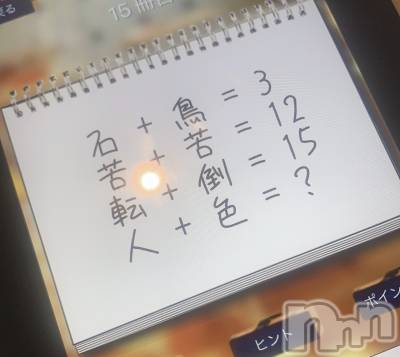 戻る
15冊目
石 + 鳥 = 3
苦 + 苦 = 12
転 + 倒 = 15
人 + 色 = ?
ヒント
ポイン